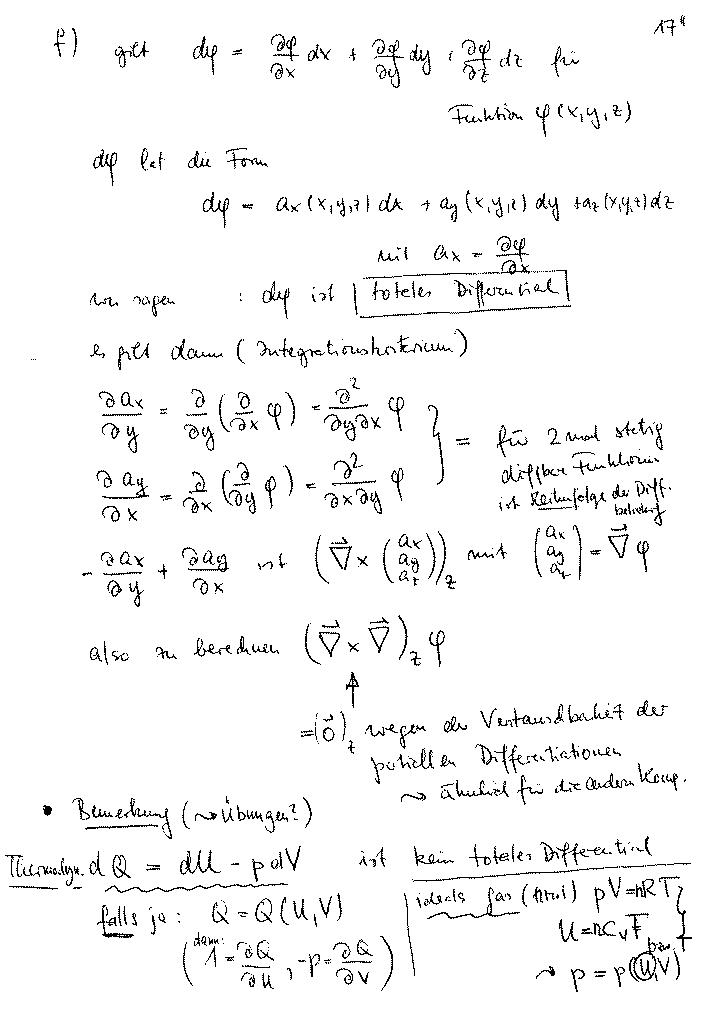 17"
f) gilt dφ = ∂φ/∂x dx + ∂φ/∂y dy + ∂φ/∂z dz für
Funktion φ(x,y,z)
dφ hat die Form
dφ = ax(x,y,z) dx + ay(x,y,z) dy + az(x,y,z) dz
mit ax = ∂φ/∂x
wir sagen : dφ ist totales Differential
es gilt dann (Integrationskriterium)
∂ax/∂y = ∂/∂y (∂/∂x φ) = ∂²/∂y∂x φ
∂ay/∂x = ∂/∂x (∂/∂y φ) = ∂²/∂x∂y φ
} = für 2 mal stetig
diffbar Funktionen
ist Reihenfolge der Diff.
beliebig
- ∂ax/∂y + ∂ay/∂x ist (∇⃗ × (ax ay az))z mit (ax ay az) = ∇⃗ φ
also zu berechnen (∇⃗ × ∇⃗)z φ
↑
= (0⃗)z wegen der Vertauschbarkeit der
partiellen Differentiationen
⤳ ähnlich für die andern Komp.
• Bemerkung (⤳ Übungen?)
Thermodyn. dQ = dU - pdV ist kein totales Differential
falls ja: Q = Q(U,V)
(dann: 1 = ∂Q/∂U, -p = ∂Q/∂V)
ideales Gas (n mol) pV = nRT
U = nCvT
⤳ p = p(U,V)